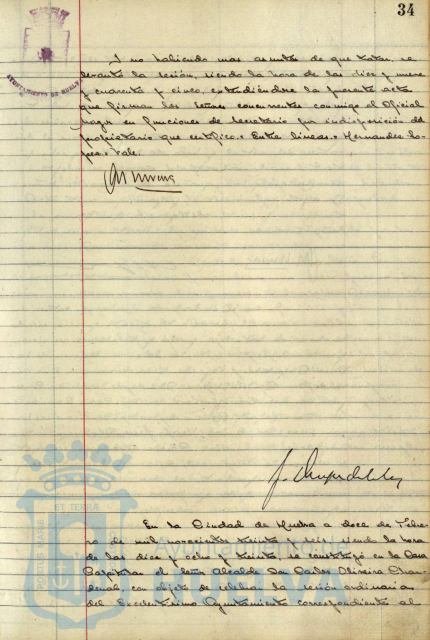 34
AYUNTAMIENTO DE HUELVA
Y no habiendo mas asuntos de que tratar, se
levantó la sesión, siendo la hora de las diez y nueve
y cuarenta y cinco, extendiéndose la presente acta
que firman los Señores concurrentes conmigo el Oficial
mayor en funciones de Secretario por indisposición del
propietario que certifico.= Entre lineas.= Hernandez Lo-
pez.= Vale.
En la Ciudad de Huelva a doce de Febre-
ro de mil novecientos treinta y seis siendo la hora
de las diez y ocho y treinta, se constituyó en la Casa
Capitular el Señor Alcalde Don Carlos Oliveira Chan-
denal, con objeto de celebrar la sesión ordinaria
del Excelentisimo Ayuntamiento correspondiente al
PORTUS MARIS
ET TERRÆ
Ayuntamiento
HUELVA